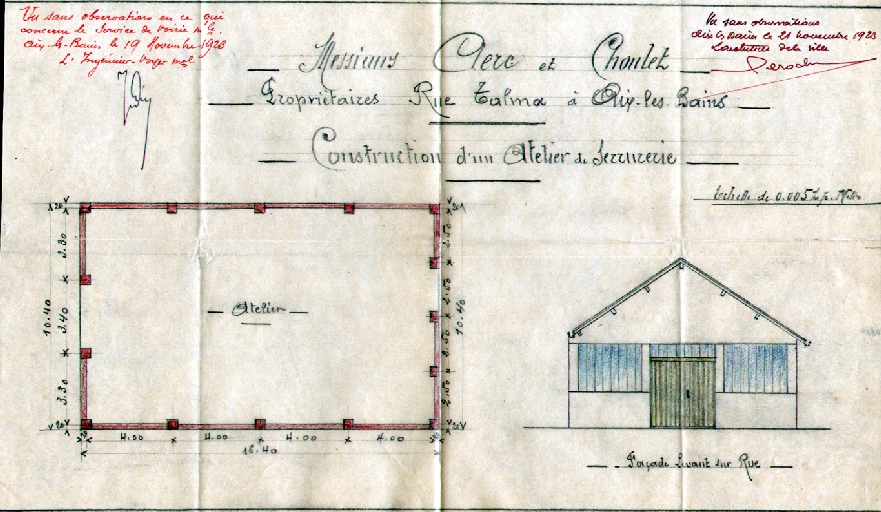 Vu sans observations en ce qui
concerne le Service de Voirie
Aix-les-Bains le 19 Novembre 1923
L'Ingénieur-Voyer
Vu sans observations
Aix les Bains le 21 novembre 1923
de la ville
Messieurs Clerc et Choulet
Propriétaires Rue Talma à Aix-les-Bains
Construction d'un Atelier de Serrurerie
Echelle de 0.005
20
20
3.30
3.40
3.30
10.40
Atelier
2.50
2.50
2.50
2.50
10.40
20
20
4.00 4.00 4.00 4.00
16.40
Façade Levant sur Rue